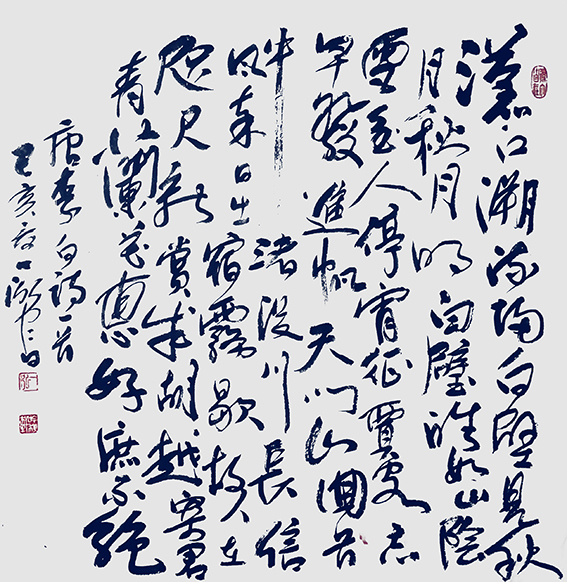 滄江溯流歸白璧見秋
月秋月明白璧皓如山陰
雪幽人停宵征賈客忘
早發進帆天門山回首
牛渚沒川長信
風來日出宿霧歇故人在
咫尺新賞成胡越寄君
青蘭花惠好庶不絕
唐李白詩一首
亥